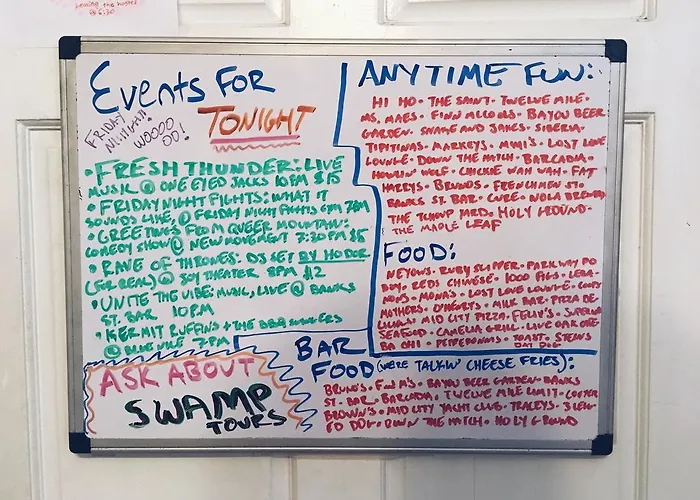 leaving the hostel
@ 6:30
Events FOR
TONIGHT
FRIDAY
NIIIIGHT!!
WOOOO
OO!
• FRESH THUNDER: LIVE
MUSIC @ ONE EYED JACKS 10PM $15
• FRIDAY NIGHT FIGHTS: WHAT IT
SOUNDS LIKE, @ FRIDAY NIGHT FIGHTS GYM 7PM
• GREETINGS FROM QUEER MOUNTAIN:
COMEDY SHOW @ NEW MOVEMENT 7:30PM $5
• RAVE OF THRONES: DJ SET BY HODOR
(FOR REAL) @ JOY THEATER 8PM $12
• UNITE THE VIBE: MUSIC, LIVE @ BANKS
ST. BAR 10PM
• KERMIT RUFFINS + THE BBQ SWINGERS
@ BLUE NILE 7PM
ASK ABOUT
SWAMP
TOURS
ANYTIME FUN:
HI HO • THE SAINT • TWELVE MILE •
MS. MAES • FINN MCCOOLS • BAYOU BEER
GARDEN • SNAKE AND JAKES • SIBERIA •
TIPITINAS • MARKEYS • MIMI'S • LOST LOVE
LOUNGE • DOWN THE HATCH • BARCADIA •
HOWLIN' WOLF • CHICKIE WAH WAH • FAT
HARRYS • BRUNOS • FRENCHMEN ST •
BANKS ST. BAR • CURE • NOLA BREWING
THE TCHOUP YARD • HOLY GROUND •
THE MAPLE LEAF
FOOD:
NEYOWS • RUBY SLIPPER • PARKWAY PO
BOY • REDS CHINESE • 1000 FIGS • LEBA
NON'S • MONA'S • LOST LOVE LOUNGE •
MOTHERS • D'HENRYS • MILK BAR • PIZZA DE
LICIOUS • MID CITY PIZZA • FELIX'S • SUPERIOR
SEAFOOD • CAMELIA GRILL • LIVE OAK CAFE •
BA CHI • PEPPERONIS • TOAST •
DAT DOG
BAR
FOOD (WE'RE TALKIN' CHEESE FRIES):
BRUNO'S • FINN M'S • BAYOU BEER GARDEN • BANKS
ST. BAR • BARCADIA • TWELVE MILE LIMIT • COOTER
BROWN'S • MID CITY YACHT CLUB • TRACEYS • 3 LEG
ED DOG • DOWN THE HATCH • HOLY GROUND